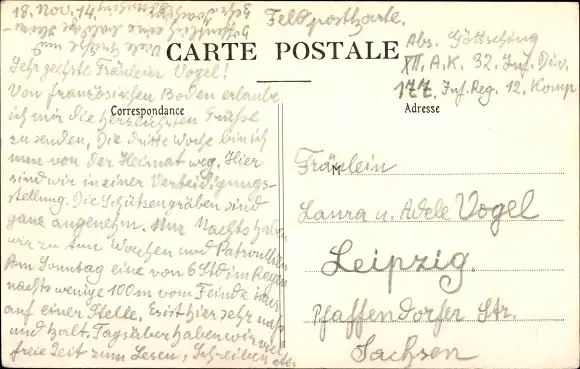 18. Nov. 14.
Feldpostkarte.
CARTE POSTALE
Abs. Göttsching
XII. A.K. 32. Inf. Div.
177. Inf. Reg. 12. Komp
Correspondance
Adresse
Sehr geehrte Fräulein Vogel!
Von französischen Boden erlaube
ich mir die herzlichsten Grüße
zu senden. Die dritte Woche bin ich
nun von der Heimat weg. Hier
sind wir in einer Verteidigungs-
stellung. Die Schützengräben sind
ganz angenehm. Nur Nachts haben
wir zu tun Wachen und Patrouillen
Am Sonntag eine von 6 Std im Regen
nachts wenige 100 m vom Feinde
auf einer Stelle. Es ist hier sehr naß
und kalt. Tagsüber haben wir viel
freie Zeit zum Lesen, Schreiben etc.
Viele Grüße und
Fräulein
Laura u. Adele Vogel
Leipzig.
Pfaffendorfer Str.
Sachsen